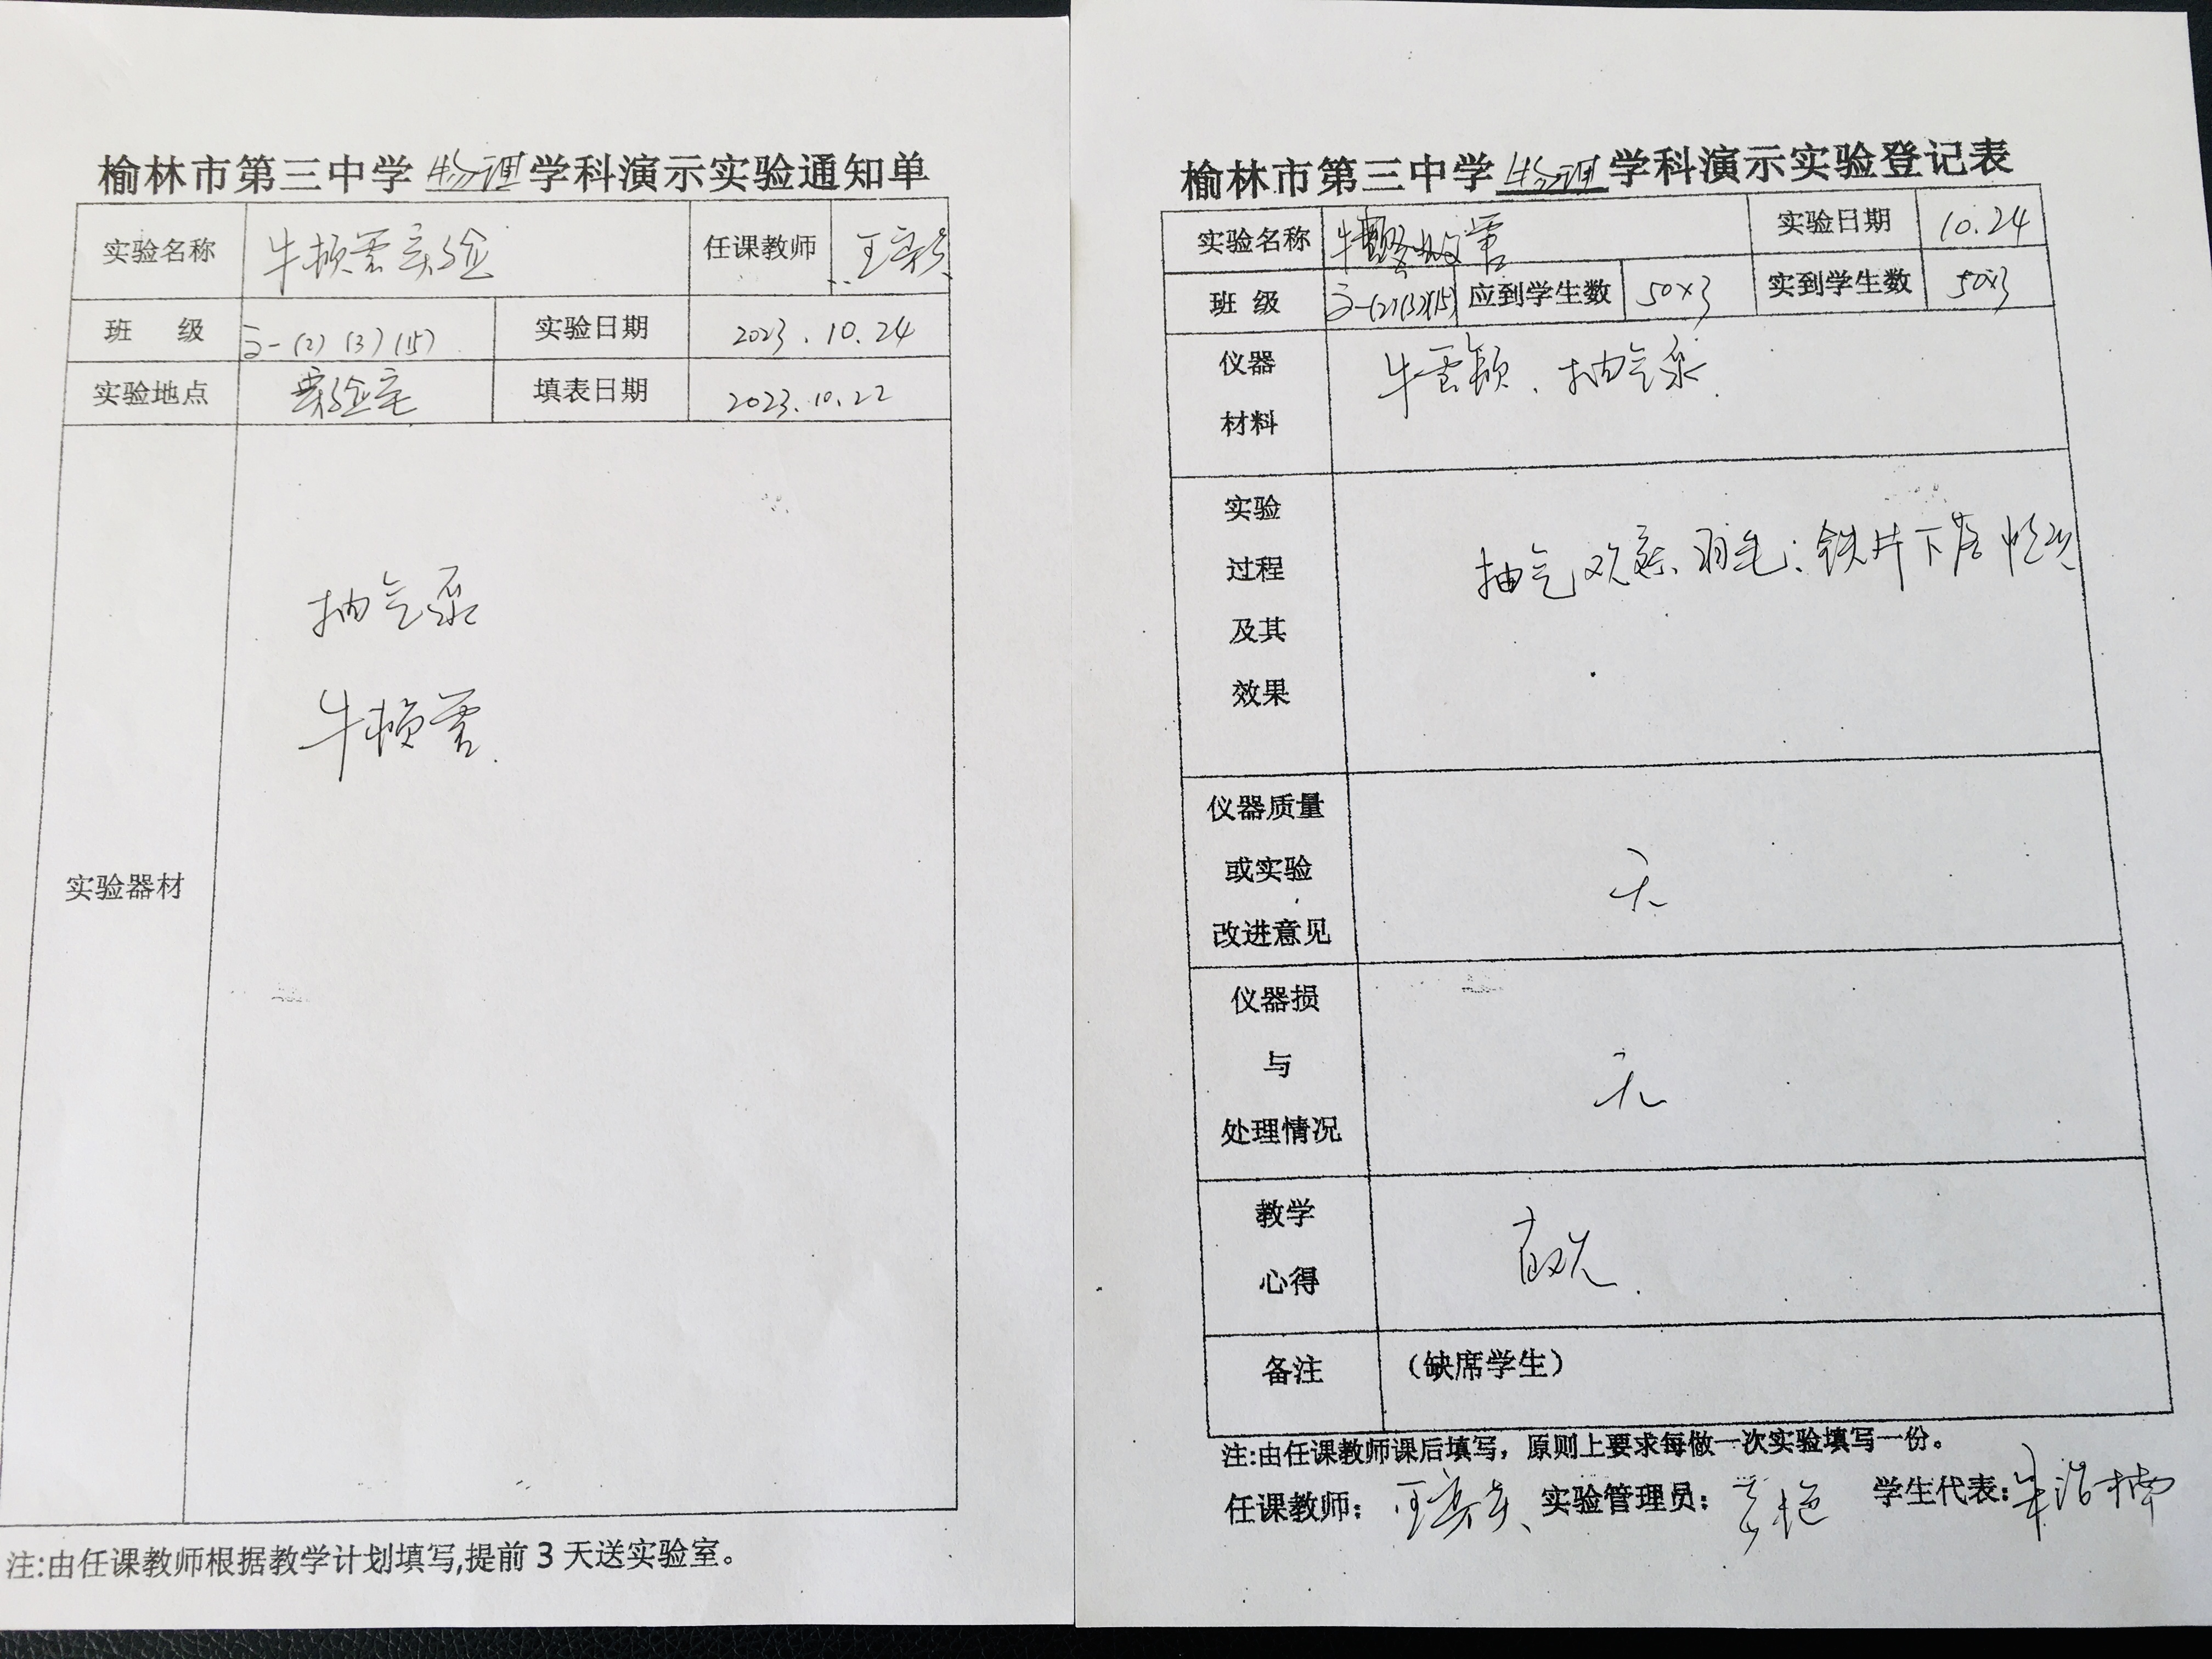 榆林市第三中学物理学科演示实验通知单
实验名称 牛顿管实验 任课教师
班 级 高一(2)(3)(15) 实验日期 2023.10.24
实验地点 实验室 填表日期 2023.10.22
实验器材
抽气泵
牛顿管
注:由任课教师根据教学计划填写,提前3天送实验室。
榆林市第三中学物理学科演示实验登记表
实验名称 实验日期 10.24
班 级 高一(2)(3)(15) 应到学生数 50×3 实到学生数 50×3
仪器
材料
抽气泵
实验
过程
及其
效果
抽气观察羽毛、铁片下落情况
仪器质量
或实验
改进意见
无
仪器损
与
处理情况
无
教学
心得
备注 (缺席学生)
注:由任课教师课后填写，原则上要求每做一次实验填写一份。
任课教师: 实验管理员: 学生代表: